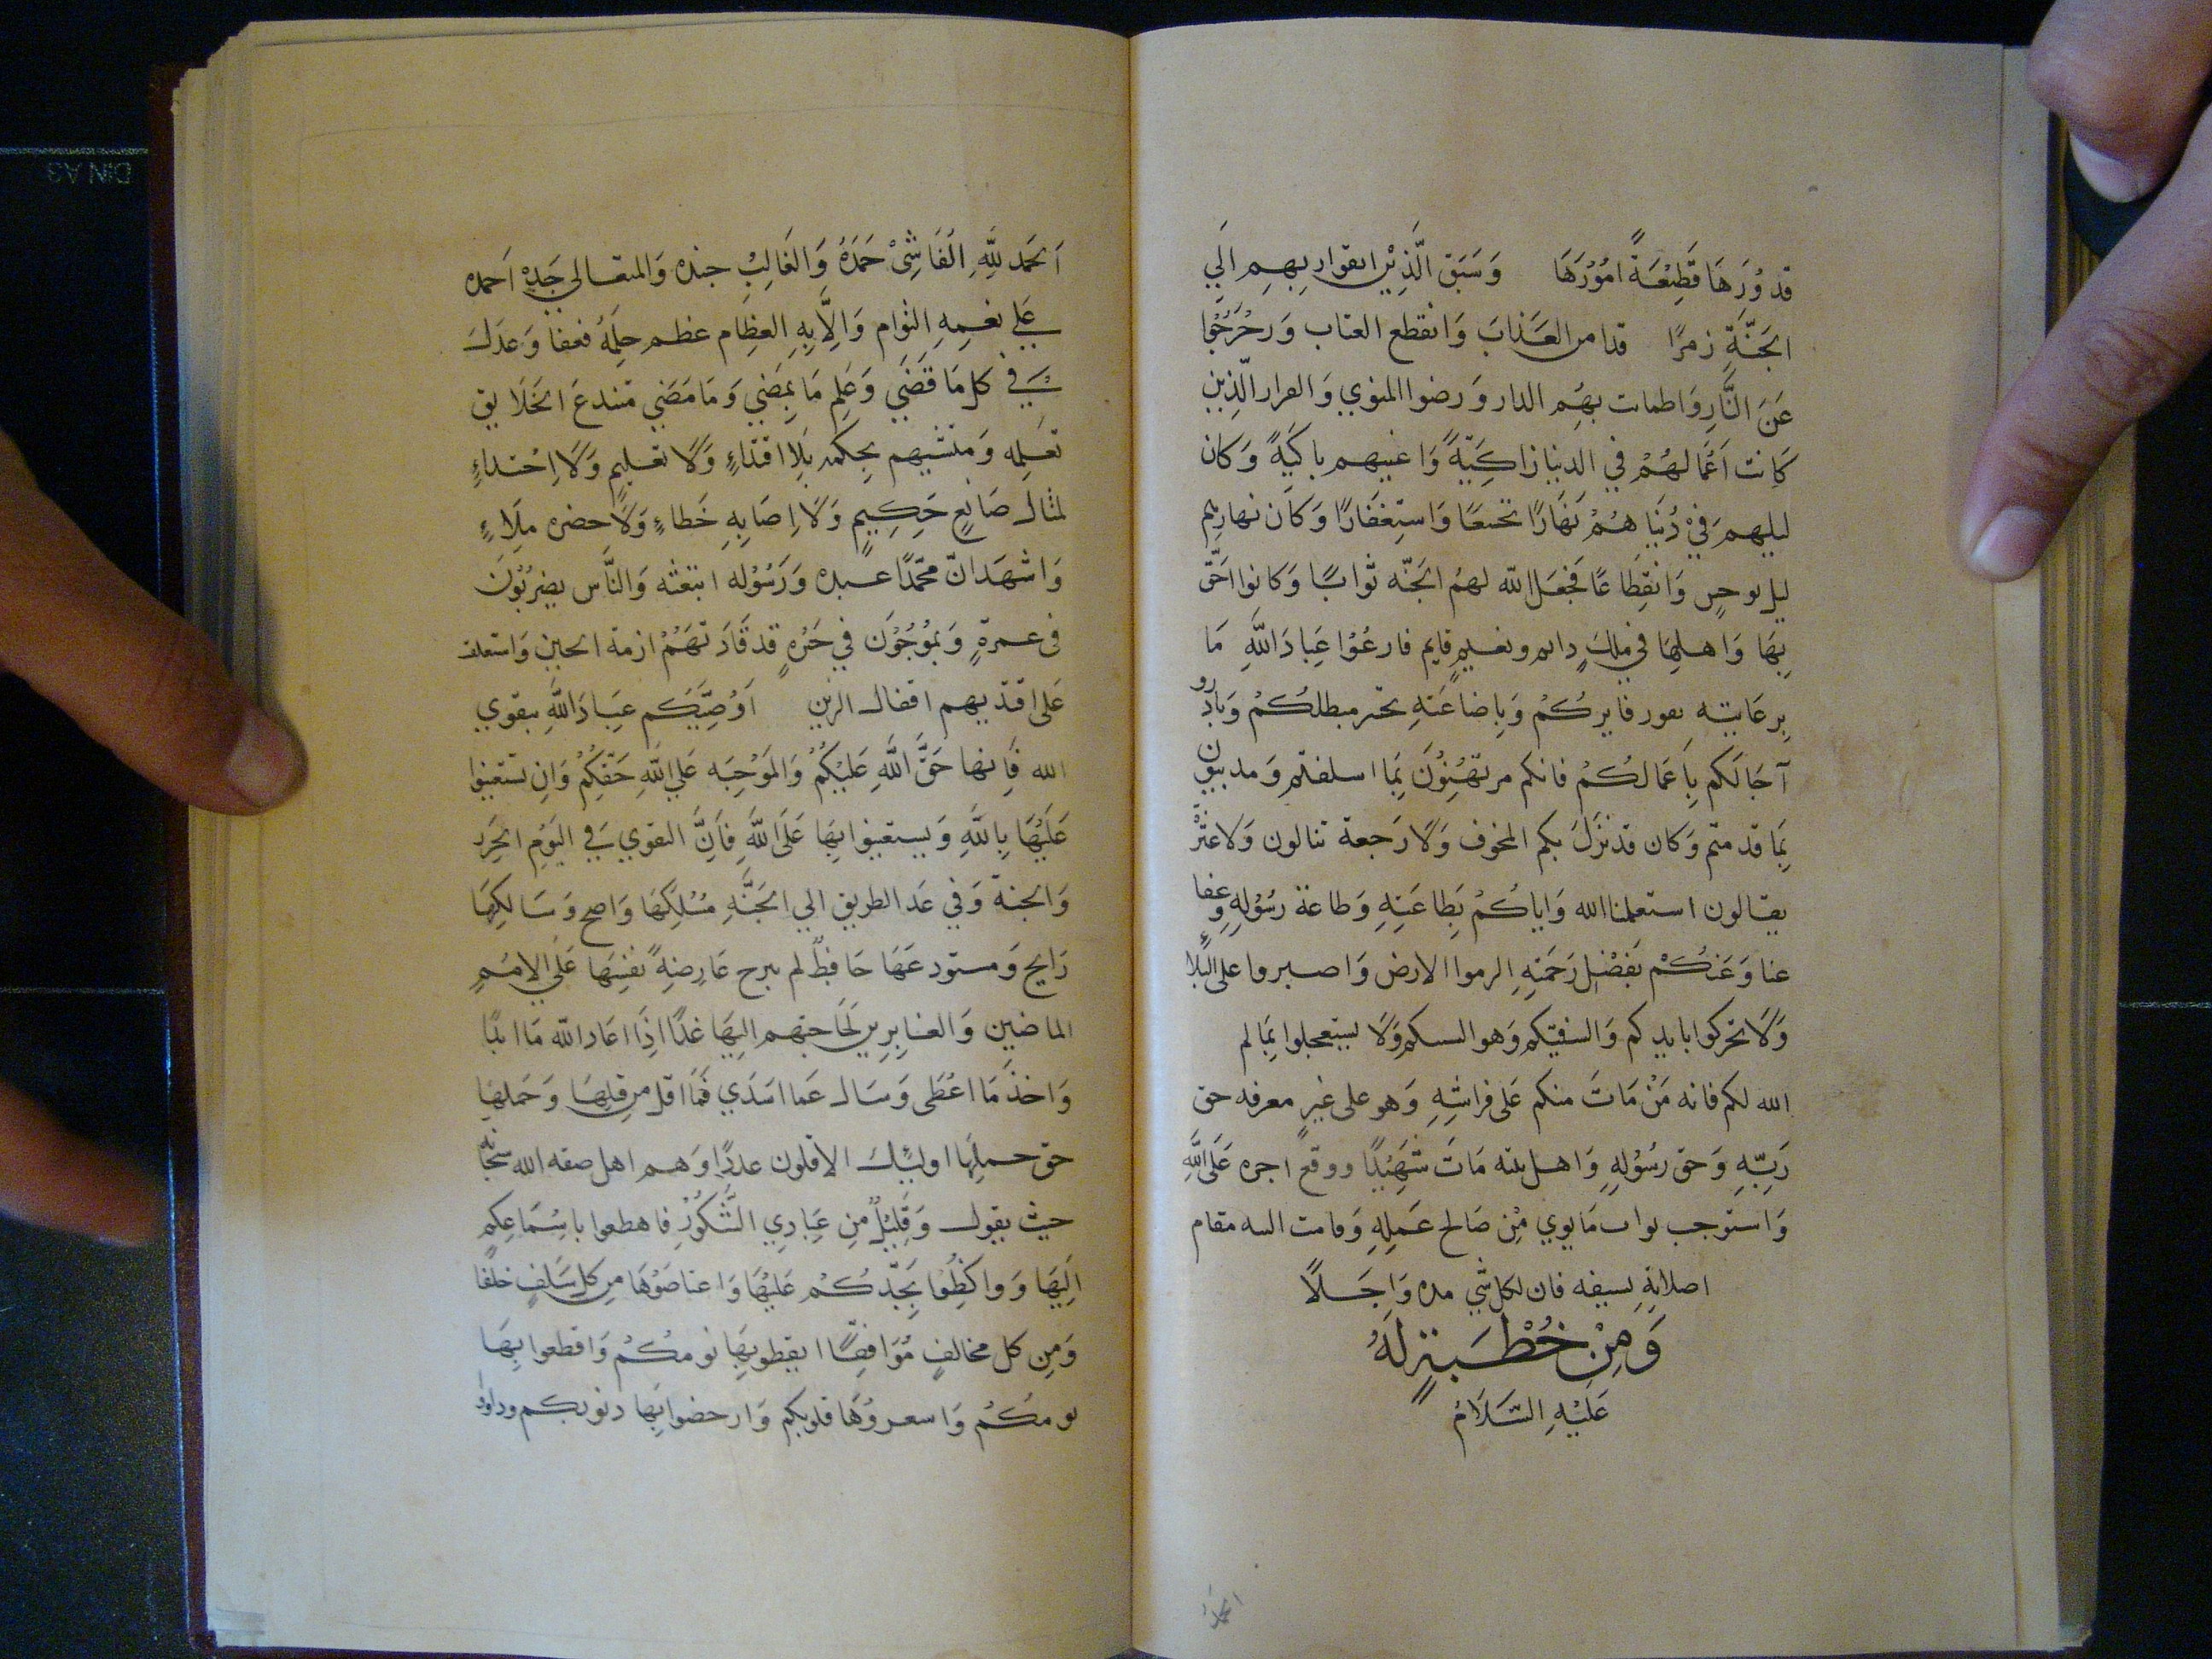 قدورها قطيعة امورها وسبق الذين اتقوا ربهم الي
الجنة زمرا قدا من العذاب وانقطع العتاب وزحزحوا
عن النار واطمانت بهم الدار ورضوا المثوي والقرار الذين
كانت اعمالهم في الدنيا زاكية واعينهم باكية وكان
ليلهم في دنياهم نهارا تخشعا واستغفارا وكان نهارهم
ليل توحش وانقطاعا فجعل الله لهم الجنه ثوابا وكانوا احق
بها واهلها في ملك دايم ونعيم قايم فارعوا عباد الله ما
برعايته يفوز فايزكم وباضاعته يخسر مبطلكم وبادروا
آجالكم باعمالكم فانكم مرتهنون بما اسلفتم ومدينون
بما قدمتم وكان قد نزل بكم المخوف ولا رجعة تنالون ولا عثرة
يقالون استعملنا الله واياكم بطاعته وطاعة رسوله وعفا
عنا وعنكم بفضل رحمته الزموا الارض واصبروا على البلا
ولا تحركوا بايديكم والسفيكم وهو السكم ولا تستعجلوا بما لم
الله لكم فانه من مات منكم على فراشه وهو على غير معرفه حق
ربه وحق رسوله واهل بيته مات شهيدا ووقع اجره على الله
واستوجب ثواب ما نوي من صالح عمله وقامت النيه مقام
اصلاته لسيفه فان لكل شي مده واجلا
ومن خطبة له
عليه السلام
الحمد
الحمد لله الفاشي حمده والغالب جنده والمتعالي جده احمده
علي نعمه التوام والآيه العظام عظم حلمه فعفا وعدل
في كل ما قضي وعلم ما يمضي وما مضي مبتدع الخلايق
بعلمه ومنشيهم بحكمه بلا اقتداء ولا تعليم ولا احتذاء
لمثال صانع حكيم ولا اصابه خطاء ولا حضره ملاء
واشهد ان محمدا عبده ورسوله ابتعثه والناس يضربون
فى غمرة ويموجون في حيره قد قادتهم ازمة الحين واستغلقت
على افئديهم اقفال الرين اوصيكم عباد الله بتقوي
الله فانها حق الله عليكم والموجبه علي الله حقكم وان تستعينوا
عليها بالله وتستعينوا بها على الله فان التقوي في اليوم الحرز
والجنة وفي غد الطريق الي الجنه مسلكها واضح وسالكها
رابح ومستودعها حافظ لم تبرح عارضة نفسها علي الامم
الماضين والغابرين لحاجتهم اليها غدا اذا اعاد الله ما ابدا
واخذ ما اعطى وسال عما اسدي فما اقل من قبلها وحملها
حق حملها اوليك الاقلون عددا وهم اهل صفه الله سبحانه
حيث يقول وقليل من عبادي الشكور فاهطعوا باسماعكم
اليها وواكظوا بجدكم عليها واعتاضوها من كل سلف خلفا
ومن كل مخالف موافقا ايقظوا بها نومكم واقطعوا بها
يومكم واشعروها قلوبكم وارحضوا بها ذنوبكم وداووا